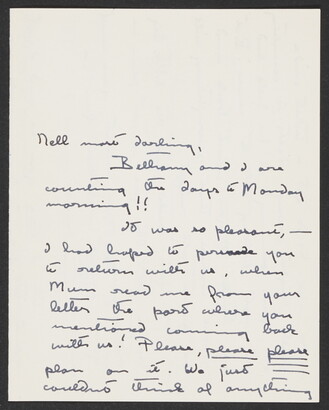 Nell most darling,
Bethany and I are
counting the days to Monday
morning!!
It was so pleasant, —
I had hoped to persuade you
to return with us, when
Mum read me from your
letter the part where you
mentioned coming back
with us! Please, please please
plan on it. We just
couldn't think of anything